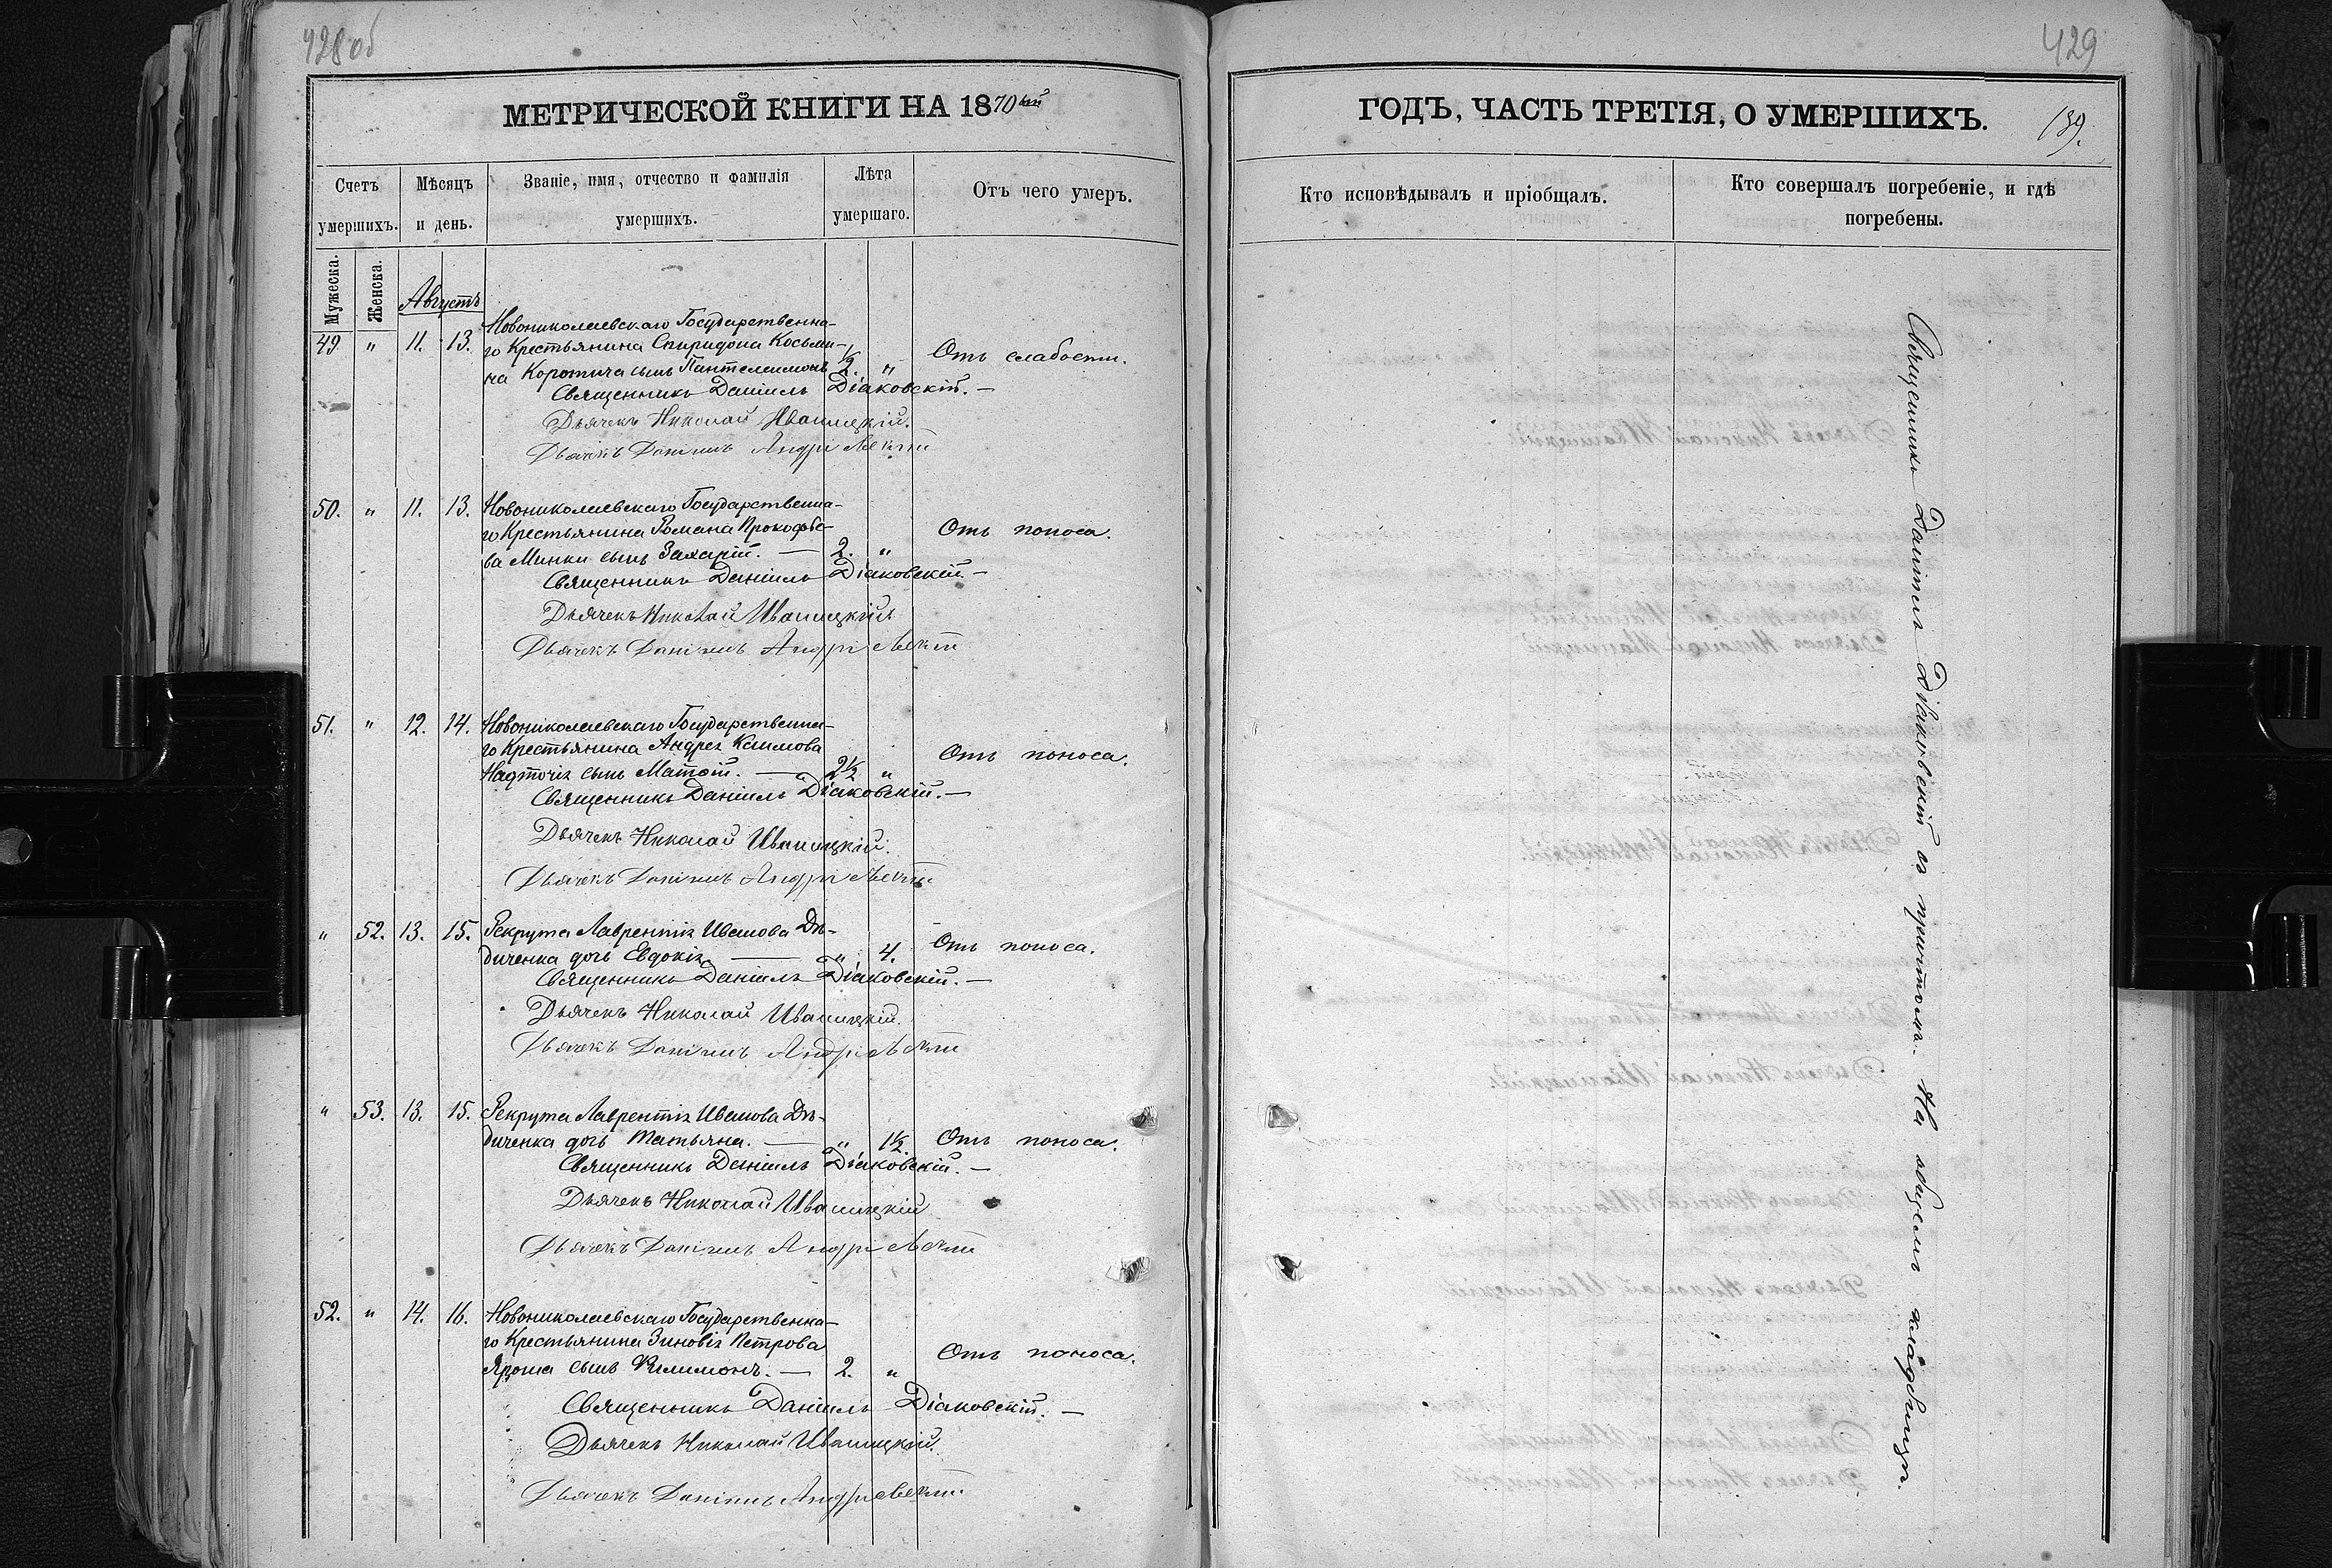 428об
МЕТРИЧЕСКОЙ КНИГИ НА 1870ый
Счетъ умершихъ.
Мѣсяцъ и день.
Званіе, имя, отчество и фамилія умершихъ.
Лѣта умершаго.
Отъ чего умеръ.
Мужеска.
Женска.
Августъ
Новониколаевскаго Государственна-
49 " 11. 13. го Крестьянина Спиридона Косьми-
на Коротича сынъ Пантелеимонъ ½ 2. " Отъ слабости.
Священникъ Даніилъ Діаковскій. —
Дьячекъ Николай Иваницкій.
Дьячекъ Даніилъ Андріевскій
50. " 11. 13. Новониколаевскаго Государственна-
го Крестьянина Романа Прокофье- Отъ поноса.
ва Минки сынъ Захарій. — 2. "
Священникъ Даніилъ Діаковскій. —
Дьячекъ Николай Иваницкій
Дьячекъ Даніилъ Андріевскій
51. " 12. 14. Новониколаевскаго Государственна-
го Крестьянина Андрея Климова Отъ поноса.
Надточія сынъ Матѳій. — 2½ "
Священникъ Даніилъ Діаковскій. —
Дьячекъ Николай Иваницкій.
Дьячекъ Даніилъ Андріевскій
" 52. 13. 15. Рекрута Лаврентія Иванова Дѣ-
диченка дочь Евдокія. — " 4. Отъ поноса.
Священникъ Даніилъ Діаковскій. —
Дьячекъ Николай Иваницкій.
Дьячекъ Даніилъ Андріевскій
" 53. 13. 15. Рекрута Лаврентія Иванова Дѣ-
диченка дочь Татьяна. — " 1½. Отъ поноса.
Священникъ Даніилъ Діаковскій. —
Дьячекъ Николай Иваницкій
Дьячекъ Даніилъ Андріевскій
52. " 14. 16. Новониколаевскаго Государственна-
го Крестьянина Зиновія Петрова
Яроша сынъ Филимонъ. — 2. " Отъ поноса.
Священникъ Даніилъ Діаковскій. —
Дьячекъ Николай Иваницкій.
Дьячекъ Даніилъ Андріевскій
429
ГОДЪ, ЧАСТЬ ТРЕТІЯ, О УМЕРШИХЪ.
139.
Кто исповѣдывалъ и пріобщалъ.
Кто совершалъ погребеніе, и гдѣ погребены.
Священникъ Даніилъ Діаковскій съ причтомъ. На общемъ кладбищѣ.